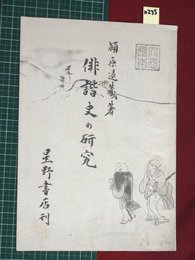 n235
潁原退蔵著
俳諧史の研究
星野書店刊